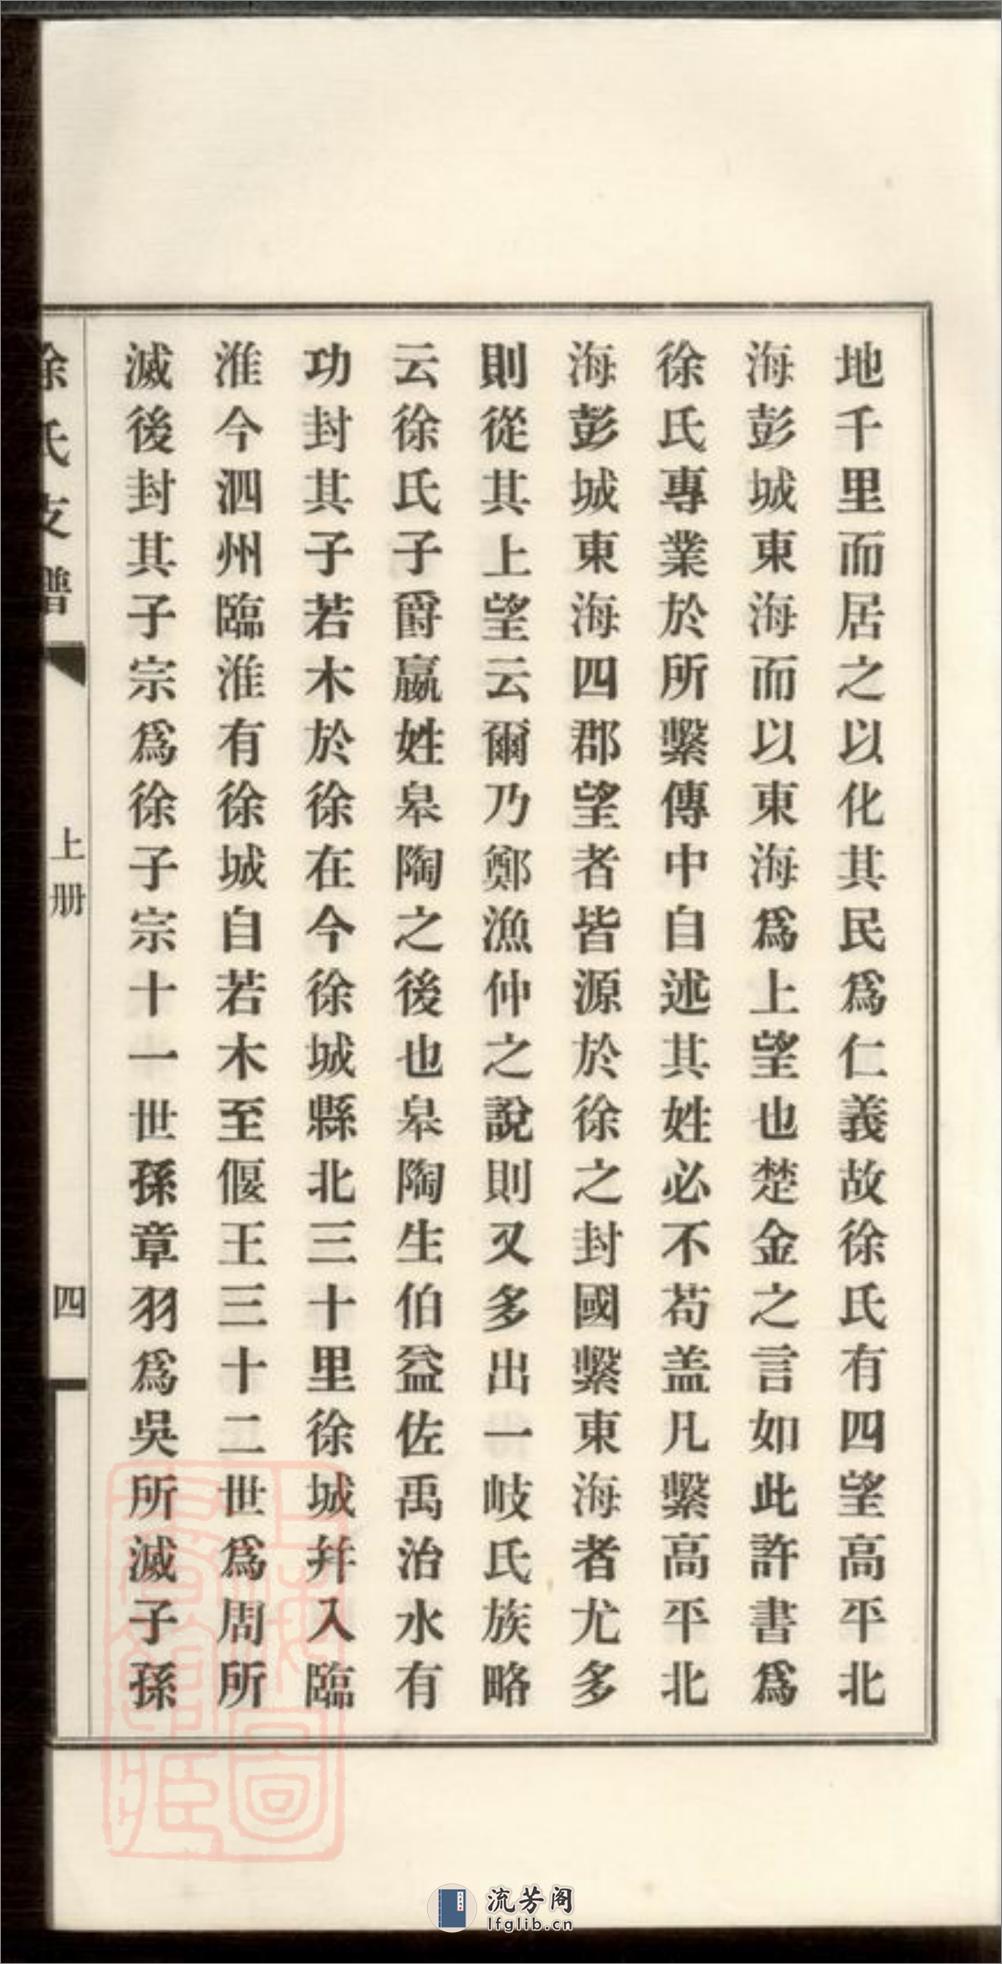 地千里而居之以化其民爲仁義故徐氏有四望高平北
海彭城東海而以東海爲上望也楚金之言如此許書爲
徐氏專業於所繫傳中自述其姓必不苟盖凡繫高平北
海彭城東海四郡望者皆源於徐之封國繫東海者尤多
則從其上望云爾乃鄭漁仲之說則又多出一岐氏族略
云徐氏子爵嬴姓皋陶之後也皋陶生伯益佐禹治水有
功封其子若木於徐在今徐城縣北三十里徐城幷入臨
淮今泗州臨淮有徐城自若木至偃王三十二世爲周所
滅後封其子宗爲徐子宗十一世孫章羽爲吳所滅子孫
徐氏支譜
上册
四
上海圖書館藏
流芳阁
lfglib.cn